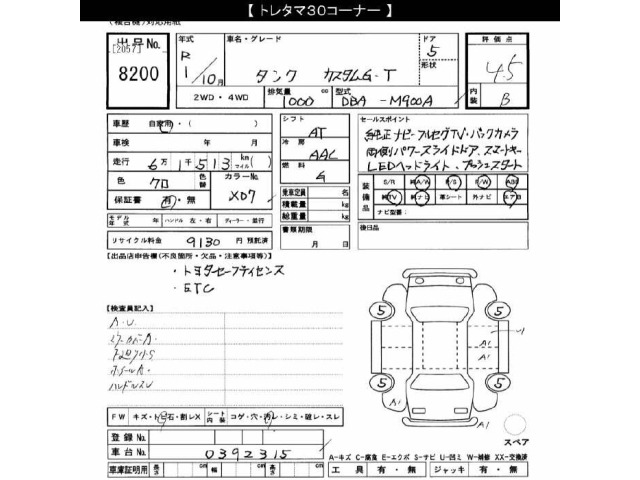 【 トレタマ30コーナー 】
(複合機)対応用紙
出品No.
[2057]
8200
年式
R
1/10月
車名・グレード
タンク カスタムG-T
ドア
5
形状
評価点
4.5
内装
B
2WD・4WD
排気量
1000 cc
型式
DBA-M900A
車歴 自家用・( )
車検 年 月
走行 6万1千513 km マイル
色 クロ
色替
カラーNo.
XD7
保証書 有・無
モデル年式 年 ハンドル 左・右 ディーラー・並行
リサイクル料金 9130 円 預託済
シフト
AT
冷房
AAC
燃料
G
乗車定員 名
積載量 kg
総重量 kg
書類期限
月 日
セールスポイント
純正ナビ・フルセグTV・バックカメラ
両側パワースライドドア、スマートキー
LEDヘッドライト、プッシュスタート
装備品
S/R 純A/W P/S P/W ABS
純TV 純ナビ 革シート 外ナビ エアB
ナビ型番:
後日品
【出品店申告欄(不良箇所・欠品・注意事項等)】
・トヨタセーフティセンス
・ETC
【検査員記入】
A.U.
ハンドルスレ
5 5
5 5
A1
A1
A1
スペア
FW キズ・ト石・割レX シート内装 コゲ・穴・汚レ・シミ・破レ・スレ
登録No.
車台No. 0392315
車庫証明用 長さ cm 幅 cm 高さ cm
A-キズ C-腐食 E-エクボ S-サビ U-凹ミ W-補修 XX-交換済
工具 有・無 ジャッキ 有・無